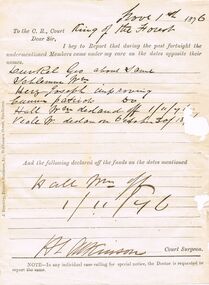 Nov 1th 1896
To the C. R., Court King of the Forest
Dear Sir,
I beg to Report that during the past fortnight the
undermentioned Members came under my care on the dates opposite their
names.
Geo about same
Wm
Herr Joseph improving
Patrick Do
Hall Wm declared off 1/11/96
Veale W declared on
And the following declared off the funds on the dates mentioned
Hall Wm off
1/11/96
Atkinson
Court Surgeon.
NOTE—In any individual case calling for special notice, the Doctor is requested to
report the same.